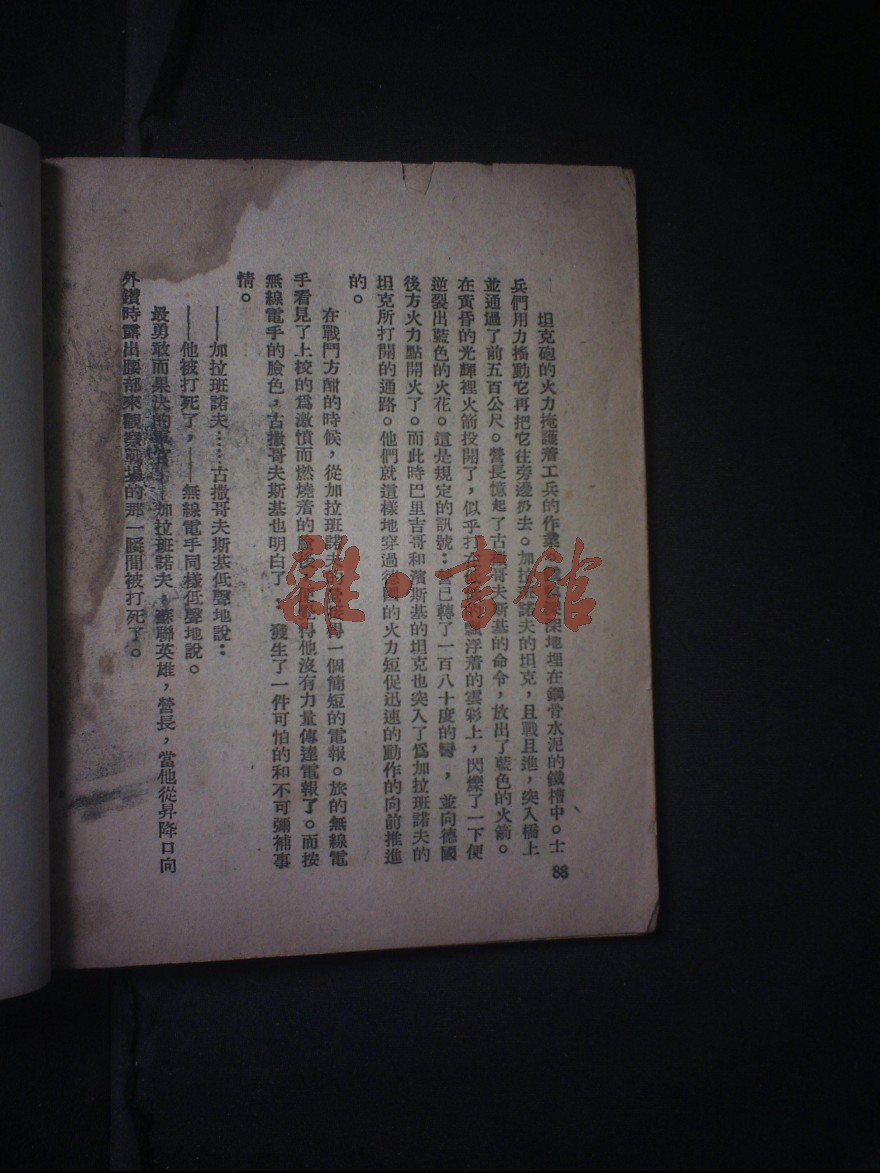 坦克砲的火力掩護着工兵的作業深地埋在鋼骨水泥的鐵槽中。士
兵們用力搖動它再把它往旁邊扔去。加拉班諾夫的坦克，且戰且進，突入橋上
並通過了前五百公尺。營長憶起了古撒哥夫斯基的命令，放出了藍色的火箭。
在黃昏的光輝裡火箭投開了，似乎打浮着的雲彩上，閃爍了一下便
逆裂出藍色的火花。這是規定的訊號：已轉了一百八十度的彎，並向德國
後方火力點開火了。而此時巴里吉哥和濱斯基的坦克也突入了爲加拉班諾夫的
坦克所打開的通路。他們就這樣地穿過德國的火力短促迅速的動作的向前推進
的。
在戰鬥方酣的時候，從加拉班諾夫的得一個簡短的電報。旅的無線電
手看見了上校的爲激憤而燃燒着的臉得他沒有力量傳達電報了。而按
無線電手的臉色，古撒哥夫斯基也明白了，發生了一件可怕的和不可彌補事
情。
——加拉班諾夫……古撒哥夫斯基低聲地說：
——他被打死了，——無線電手同樣低聲地說。
最勇敢而果決的加拉班諾夫，蘇聯英雄，營長，當他從昇降口向
外鑽時露出腰部來觀察戰場的那一瞬間被打死了。
88
雜·書館